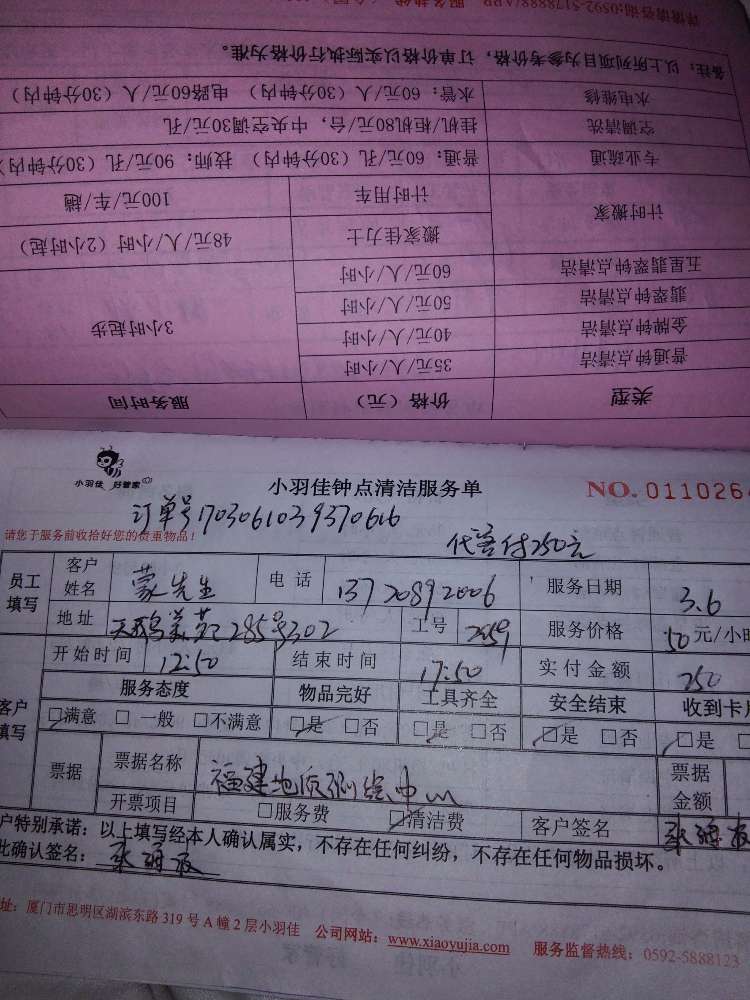 类型 价格（元） 服务时间
普通钟点清洁 35元/人/小时 3小时起步
金牌钟点清洁 40元/人/小时
翡翠钟点清洁 50元/人/小时
五星翡翠钟点清洁 60元/人/小时
计时搬家 搬家佳力士 48元/人/小时（2小时起）
计时用车 100元/车/趟
专业疏通 普通：60元/孔（30分钟内） 技师：90元/孔（30分钟内）
空调清洗 挂机/柜机80元/台，中央空调30元/孔
水电维修 水管：60元/人（30分钟内） 电路60元/人（30分钟内）
备注：以上所列项目为参考价格，订单价格以实际执行价格为准。
小羽佳 好管家
小羽佳钟点清洁服务单
NO. 011026
订单号1703061039370616
请您于服务前收拾好您的贵重物品！
代客付250元
员工填写 客户姓名 蒙先生 电话 13720892006 服务日期 3.6
地址 285号302 工号 2559 服务价格 50元/小
开始时间 12:50 结束时间 17:50 实付金额 250
客户填写 服务态度 物品完好 工具齐全 安全结束 收到卡片
☑满意 □一般 □不满意 ☑是 □否 ☑是 □否 ☑是 □否 ☑是 □
票据 票据名称 福建地质测绘中心 票据金额
开票项目 □服务费 ☑清洁费 客户签名
户特别承诺：以上填写经本人确认属实，不存在任何纠纷，不存在任何物品损坏。
此确认签名：
址：厦门市思明区湖滨东路319号A幢2层小羽佳 公司网站：www.xiaoyujia.com 服务监督热线：0592-5888123